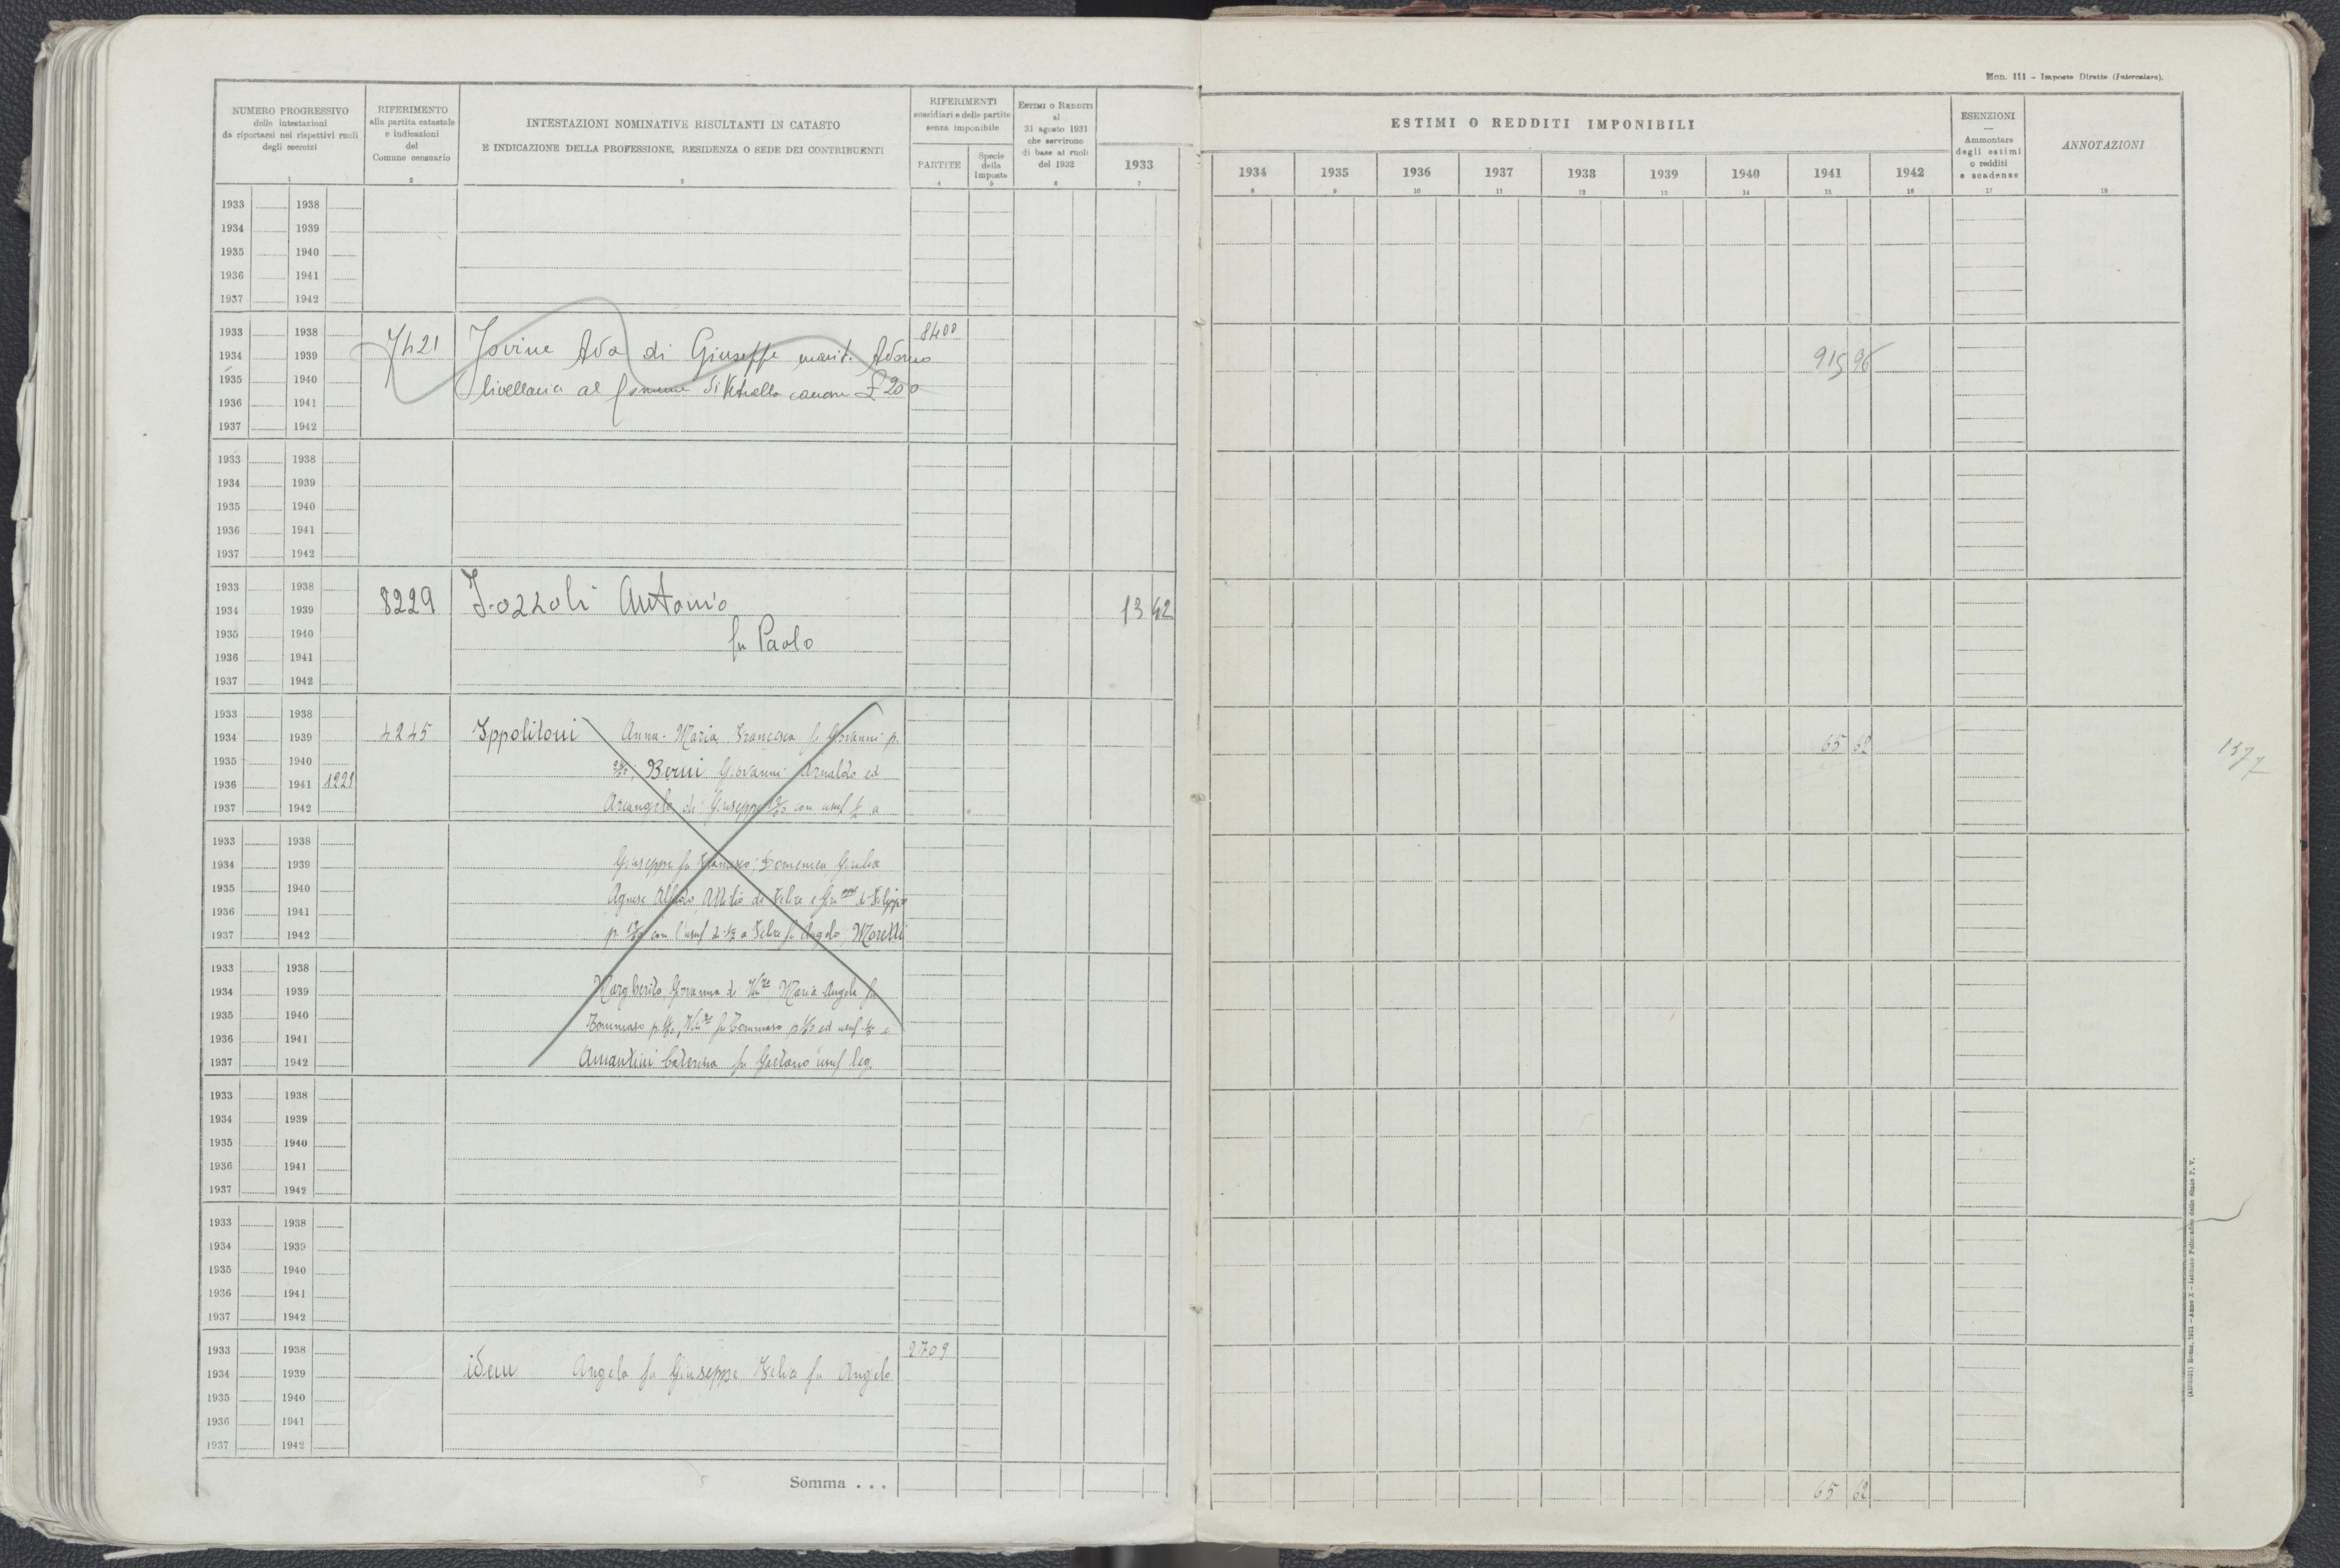 Mod. 111 - Imposte Dirette (Intercalare).
NUMERO PROGRESSIVO
delle intestazioni
da riportarsi nei rispettivi ruoli
degli esercizi
1
RIFERIMENTO
alla partita catastale
e indicazioni
del
Comune censuario
2
INTESTAZIONI NOMINATIVE RISULTANTI IN CATASTO
E INDICAZIONE DELLA PROFESSIONE, RESIDENZA O SEDE DEI CONTRIBUENTI
3
RIFERIMENTI
sussidiari e delle partite
senza imponibile
PARTITE
4
Specie
della
Imposta
5
ESTIMI O REDDITI
al
31 agosto 1931
che servirono
di base ai ruoli
del 1932
6
1933
7
ESTIMI O REDDITI IMPONIBILI
1934 1935 1936 1937 1938 1939 1940 1941 1942
8 9 10 11 12 13 14 15 16
ESENZIONI
—
Ammontare
degli estimi
o redditi
e scadenze
17
ANNOTAZIONI
18
1933 1938
1934 1939
1935 1940
1936 1941
1937 1942
1933 1938 8400
1934 1939 7421 Jovine Ada di Giuseppe marit. Adorno 915 96
1935 1940 livellaria al Comune di Vetralla canone £ 200
1936 1941
1937 1942
1933 1938
1934 1939
1935 1940
1936 1941
1937 1942
1933 1938
1934 1939 8229 Jozzoli Antonio 13 42
1935 1940 fu Paolo
1936 1941
1937 1942
1933 1938
1934 1939 4245 Ippolitoni Anna-Maria Francesca fu Giovanni p. 65 62
1935 1940 Berni Giovanni Arnaldo ed
1936 1941 1221
1937 1942 Arcangelo di Giuseppe con usuf a
1933 1938
1934 1939 Giuseppe fu Francesco; Domenica Giulia
1935 1940 Agnese Alfredo Attilio di Felice e
1936 1941
1937 1942 con l'usuf di 1/2 a Felice fu Angelo; Moretti
1933 1938
1934 1939 Margherita, Giovanna di Maria Angela fu
1935 1940 Tommaso fu Tommaso ed usuf
1936 1941
1937 1942 Amantini Caterina fu Gaetano usuf leg.
1933 1938
1934 1939
1935 1940
1936 1941
1937 1942
1933 1938
1934 1939
1935 1940
1936 1941
1937 1942
1933 1938 2709
1934 1939 idem Angelo fu Giuseppe Felice fu Angelo
1935 1940
1936 1941
1937 1942
Somma . . . 65 62
137